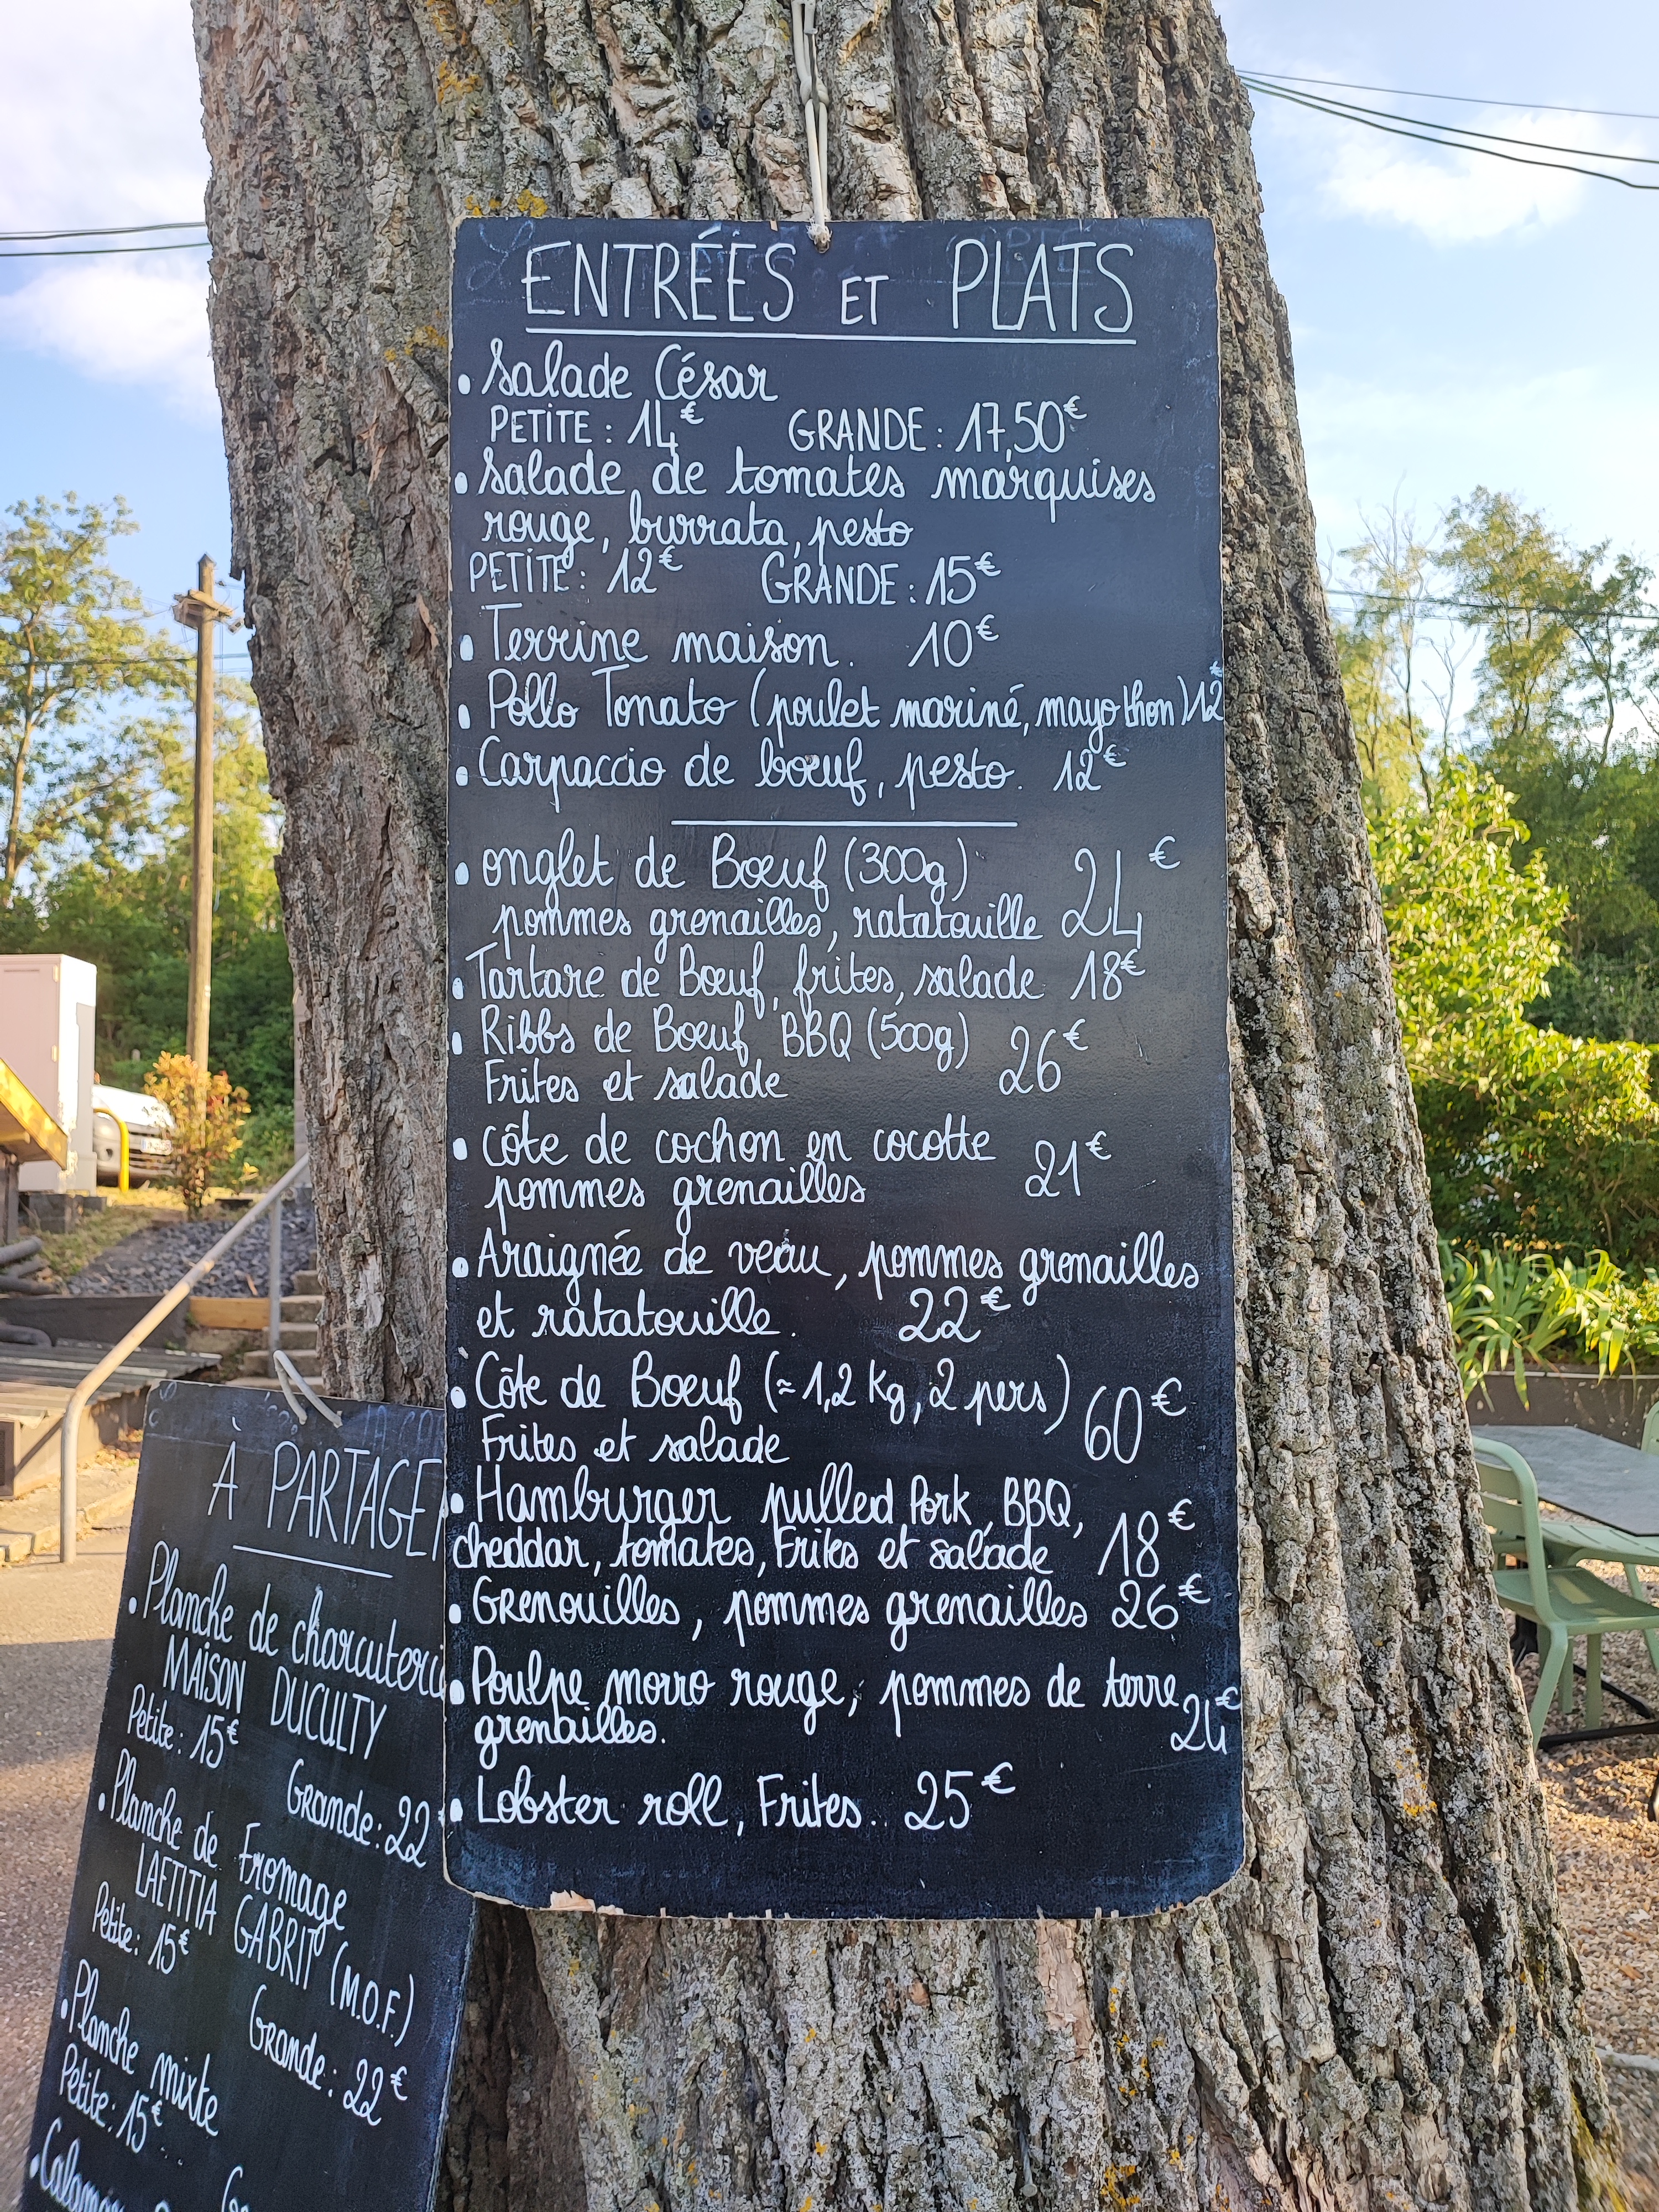 ENTRÉES ET PLATS
• Salade César
PETITE : 14€ GRANDE : 17,50€
• Salade de tomates marquises
rouge, burrata, pesto
PETITE : 12€ GRANDE : 15€
• Terrine maison. 10€
• Pollo Tonato (poulet mariné, mayo thon) 12€
• Carpaccio de bœuf, pesto. 12€
• onglet de Bœuf (300g)
pommes grenailles, ratatouille 24€
• Tartare de Bœuf, frites, salade 18€
• Ribbs de Bœuf BBQ (500g)
Frites et salade 26€
• côte de cochon en cocotte
pommes grenailles 21€
• Araignée de veau, pommes grenailles
et ratatouille. 22€
• Côte de Bœuf (≈1,2 kg, 2 pers) 60€
Frites et salade
• Hamburger pulled Pork, BBQ,
cheddar, tomates, Frites et salade 18€
• Grenouilles, pommes grenailles 26€
• Poulpe morro rouge, pommes de terre
grenailles. 24€
• Lobster roll, Frites.. 25€
À PARTAGE
• Planche de charcuterie
MAISON DUCULTY
Petite : 15€ Grande : 22
• Planche de Fromage
LAETITIA GABRIT (M.O.F.)
Petite : 15€ Grande : 22€
• Planche mixte
Petite : 15€